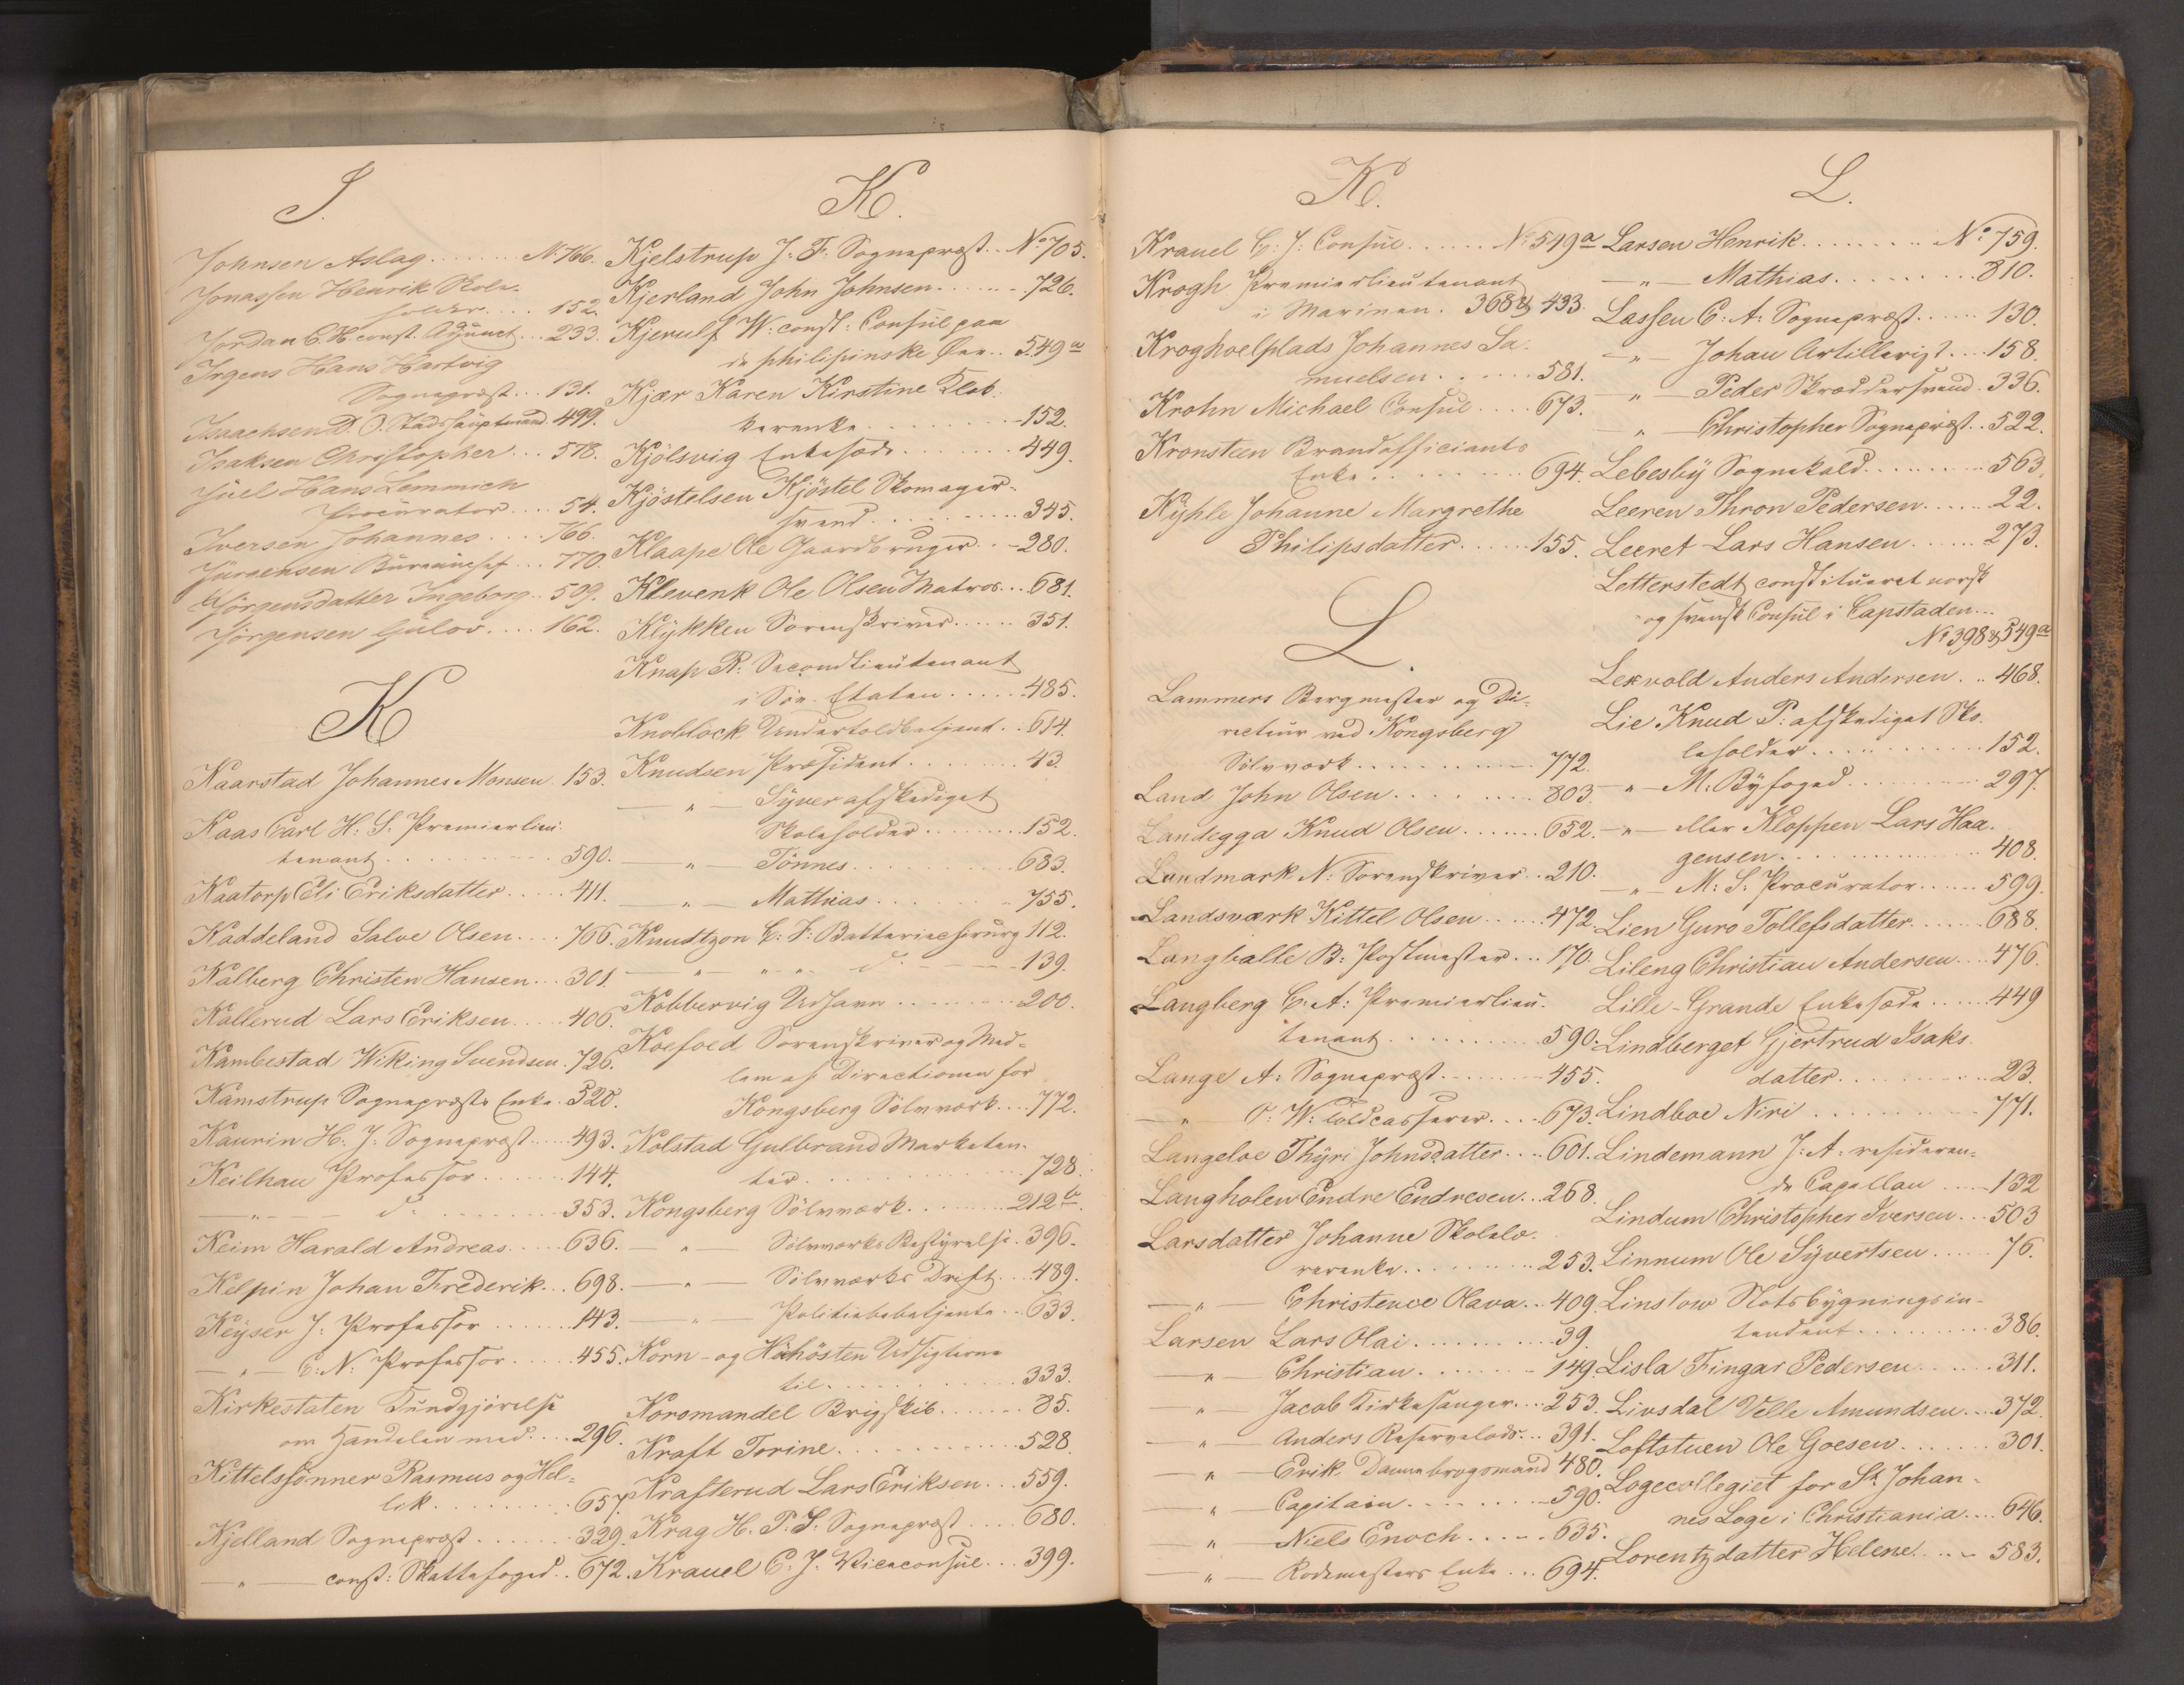 J.
Johnsen Aslag . . . . . . N. 766.
Jonassen Henrik Skole-
holder . . . . 152.
Jordan C. H. const. Adjunct . . . 233.
Irgens Hans Hartvig
Sognepræst . . . 131.
Isaachsen D. O. Stadshauptmand 499.
Isaksen Christopher . . . 578.
Juel Hans Lemmich
Procurator . . . . 54.
Iversen Johannes . . . . 766.
Jürgensen Büreauchef . . . 770.
Jörgensdatter Ingeborg . . 509.
Jörgensen Gulov . . . . 162.
K
Kaarstad Johannes Monsen . 153.
Kaas Carl H. S. Premierlieu-
tenant . . . . . . . . . 590.
Kaatorp Eli Eriksdatter . . . . 411.
Kaddeland Salve Olsen . . . . 766.
Kalberg Christen Hansen . . . 301.
Kallerud Lars Eriksen . . . . 406.
Kambestad Wiking Svendsen . 726.
Kamstrup Sognepræsts Enke . 328.
Kaurin H. J. Sognepræst . . . . 493.
Keilhau Professor . . . . . . 144.
— " — d: . . . . . . . 353.
Keim Harald Andreas . . . . 636.
Kelpin Johan Frederik . . . 698.
Keyser J. Professor . . . . . . 143.
— " — C. N. Professor . . . . . 455.
Kirkestaten Kundgjörelse
om Handelen med . . . . 296.
Kittelssönner Rasmus og Hel-
lik . . . . . . . . . . 657.
Kjelland Sognepræst . . . . . . 329.
— " — const: Skattefoged . . 672.
K.
Kjelstrup J. F. Sognepræst . . No. 705.
Kjerland John Johnsen . . . . . . 726.
Kjerulf W. const: Consul paa
de philipinske Öer . . 549 a
Kjær Karen Kirstine Klok-
kerenke . . . . . . . . . 152.
Kjölsvig Enkesæde . . . . . . . 449.
Kjöstelsen Kjöstel Skomager-
svend . . . . . . . . . . 345.
Klaape Ole Gaardbruger . . . 280.
Klevenk Ole Olsen Matros . . . 681.
Klykken Sorenskriver . . . . . . 351.
Knap R. Secondlieutenant
i Söe-Etaten . . . . . 485.
Knoblock Undertoldbetjent . . 614.
Knudsen Præsident . . . . . . . 43.
— " — Syver afskediget
Skoleholder . . . . . . . . 152.
— " — Tönnes . . . . . . . . . . 683.
— " — Mathias . . . . . . . . 755.
Knudtzon C. F. Batteriechirurg 112.
— " — " " — d: — 139.
Kobbervig Udhavn . . . . . . . . . 200.
Koefoed Sorenskriver og Med-
lem af Directionen for
Kongsberg Sölvværk . . . . 772.
Kolstad Gulbrand Marketen-
ter . . . . . . . . . . . . . . 728.
Kongsberg Sölvværk . . . . . . . 212 b.
— " — Sölvværks Bestyrelse . 396.
— " — Sölvværks Drift . . . 489.
— " — Politiebetjente . . 633.
Korn- og Höehösten Udsigterne
til . . . . . . . . . . . . . 333.
Koromandel Brigskib . . . . . . 85.
Kraft Torine . . . . . . . . . . . . 528.
Krafterud Lars Eriksen . . . 559.
Krag H. P. S. Sognepræst . . . . 680.
Krauel C. J. Viceconsul . . . 399.
K.
Krauel C. J. Consul . . . . . . No. 549 a
Krogh Premierlieutenant
i Marinen . 368 & 433.
Kroghoelplads Johannes Sa-
muelsen . . . . . . 581.
Krohn Michael Consul . . . . 673.
Kronsteen Brandofficiants
Enke . . . . . . . . . . . 694.
Kyhle Johanne Margrethe
Philipsdatter . . . . . 155.
L.
Lammers Bergmester og Di-
recteur ved Kongsberg
Sölvværk . . . . . . . . . . 772.
Land John Olsen . . . . . . . . 803.
Landegga Knud Olsen . . . . . . 652.
Landmark N. Sorenskriver . . 210.
Landsværk Kittel Olsen . . . . . 472.
Langballe B. Postmester . . . 170.
Langberg C. A. Premierlieu-
tenant . . . . . . . . . . . 590.
Lange A. Sognepræst . . . . . . . 455.
— " — O. W. Toldcasserer . . . . 673.
Langeloe Thyri Johnsdatter . . . . 601.
Langholen Endre Endresen . . 268.
Larsdatter Johanne Skolelæ-
rerenke . . . . . . . . . . 253.
— " — Christence Olava . . 409.
Larsen Lars Olai . . . . . . . . . 39.
— " — Christian . . . . . . . . . 149.
— " — Jacob Kirkesanger . . . . 253.
— " — Anders Reservelods . . . 391.
— " — Erik Dannebrogsmand 480.
— " — Capitain . . . . . . . . . 590.
— " — Niels Enoch . . . . . . 635.
— " — Rodemesters Enke . . . 694.
L.
Larsen Henrik . . . . . . . . . . No. 759.
— " — Mathias . . . . . . . . . 810.
Lassen C. A. Sognepræst . . . . . . 130.
— " — Johan Artillerist . . . . 158.
— " — Peder Skræddersvend . 336.
— " — Christopher Sognepræst . . 522.
Lebesby Sognekald . . . . . . . . . 563.
Leeren Thron Pedersen . . . . . . 22.
Leeret Lars Hansen . . . . . . . 273.
Letterstedt constitueret norsk
og svensk Consul i Capstaden . . .
No. 398 & 549 a
Lexvold Anders Andersen . . . 468.
Lie Knud P. afskediget Sko-
leholder . . . . . . . . . . . 152.
— " — M. Byfoged . . . . . . . . . . 297.
— " — eller Kloppen Lars Haa-
gensen . . . . . . . . . . . 408.
— " — M. S. Procurator . . . . . . 599.
Lien Guro Tollefsdatter . . . . . . 688.
Lileng Christian Andersen . . . 476.
Lille-Grande Enkesæde . . . . . . 449
Lindberget Gjertrud Isaks-
datter . . . . . . . . . . . 23.
Lindboe Niri . . . . . . . . . . . 771.
Lindemann J. A. resideren-
de Capellan . . . . . 132
Lindum Christopher Iversen . . . 503
Linnum Ole Syvertsen . . . . . . 76.
Linstow Slotsbygningsin-
tendent . . . . . . . . . . . 386.
Lisla Fingar Pedersen . . . . . . . 311.
Livsdal Velle Amundsen . . . 372.
Loftstuen Ole Goesen . . . . . . . 301.
Logecollegiet for St. Johan-
nes Loge i Christiania . . . . 646.
Lorentzdatter Helene . . . . . 583.